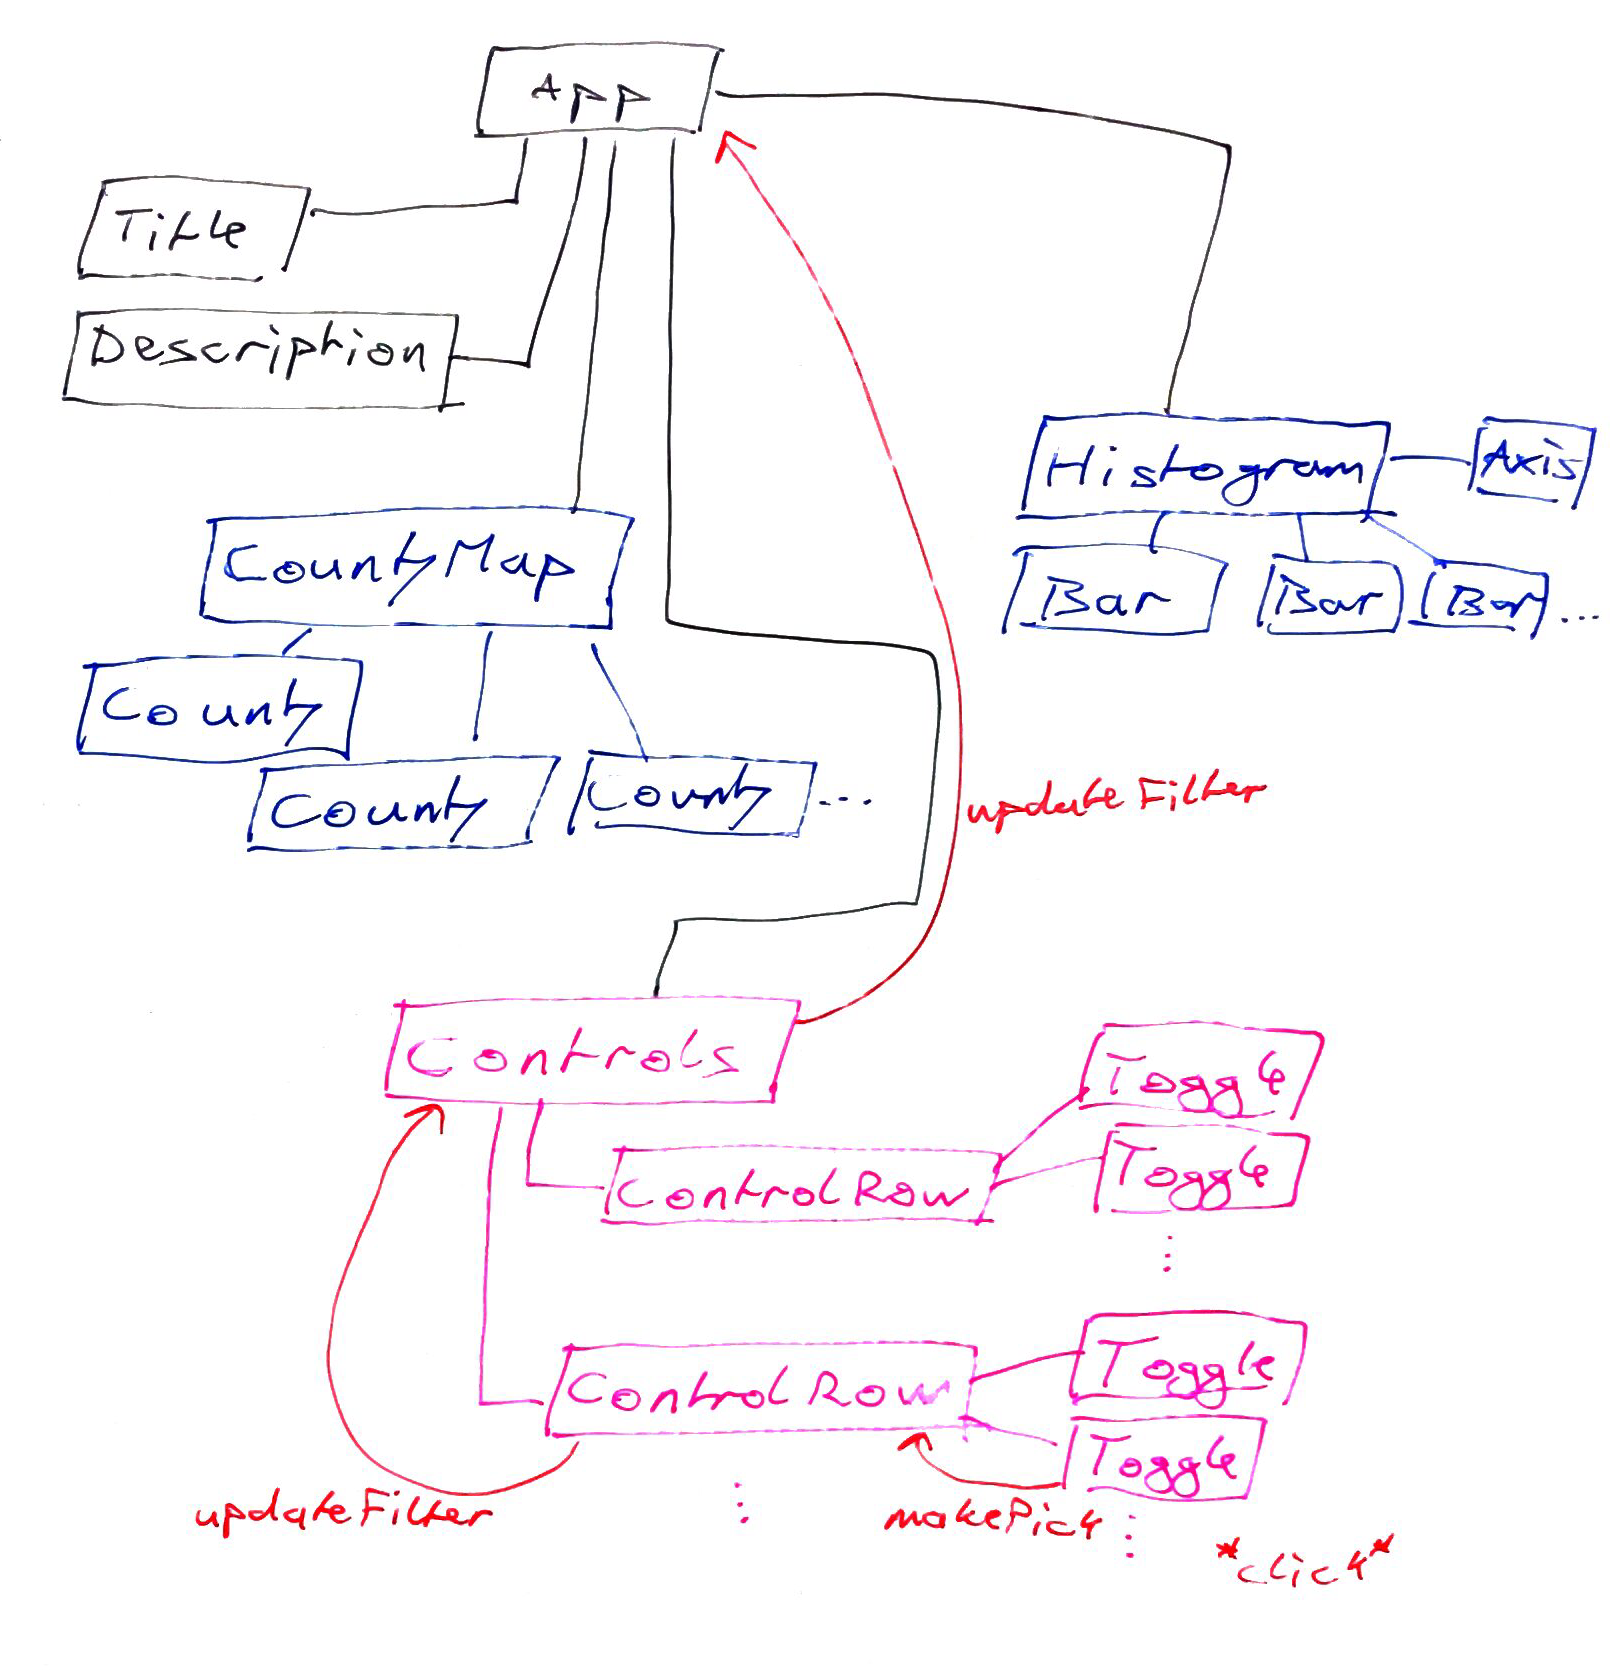 App
Title
Description
Histogram
Axis
Bar
Bar
Bar
...
CountyMap
County
County
County
...
updateFilter
Controls
Toggle
ControlRow
Toggle
⋮
Toggle
ControlRow
Toggle
updateFilter
⋮
makePick
⋮
*click*